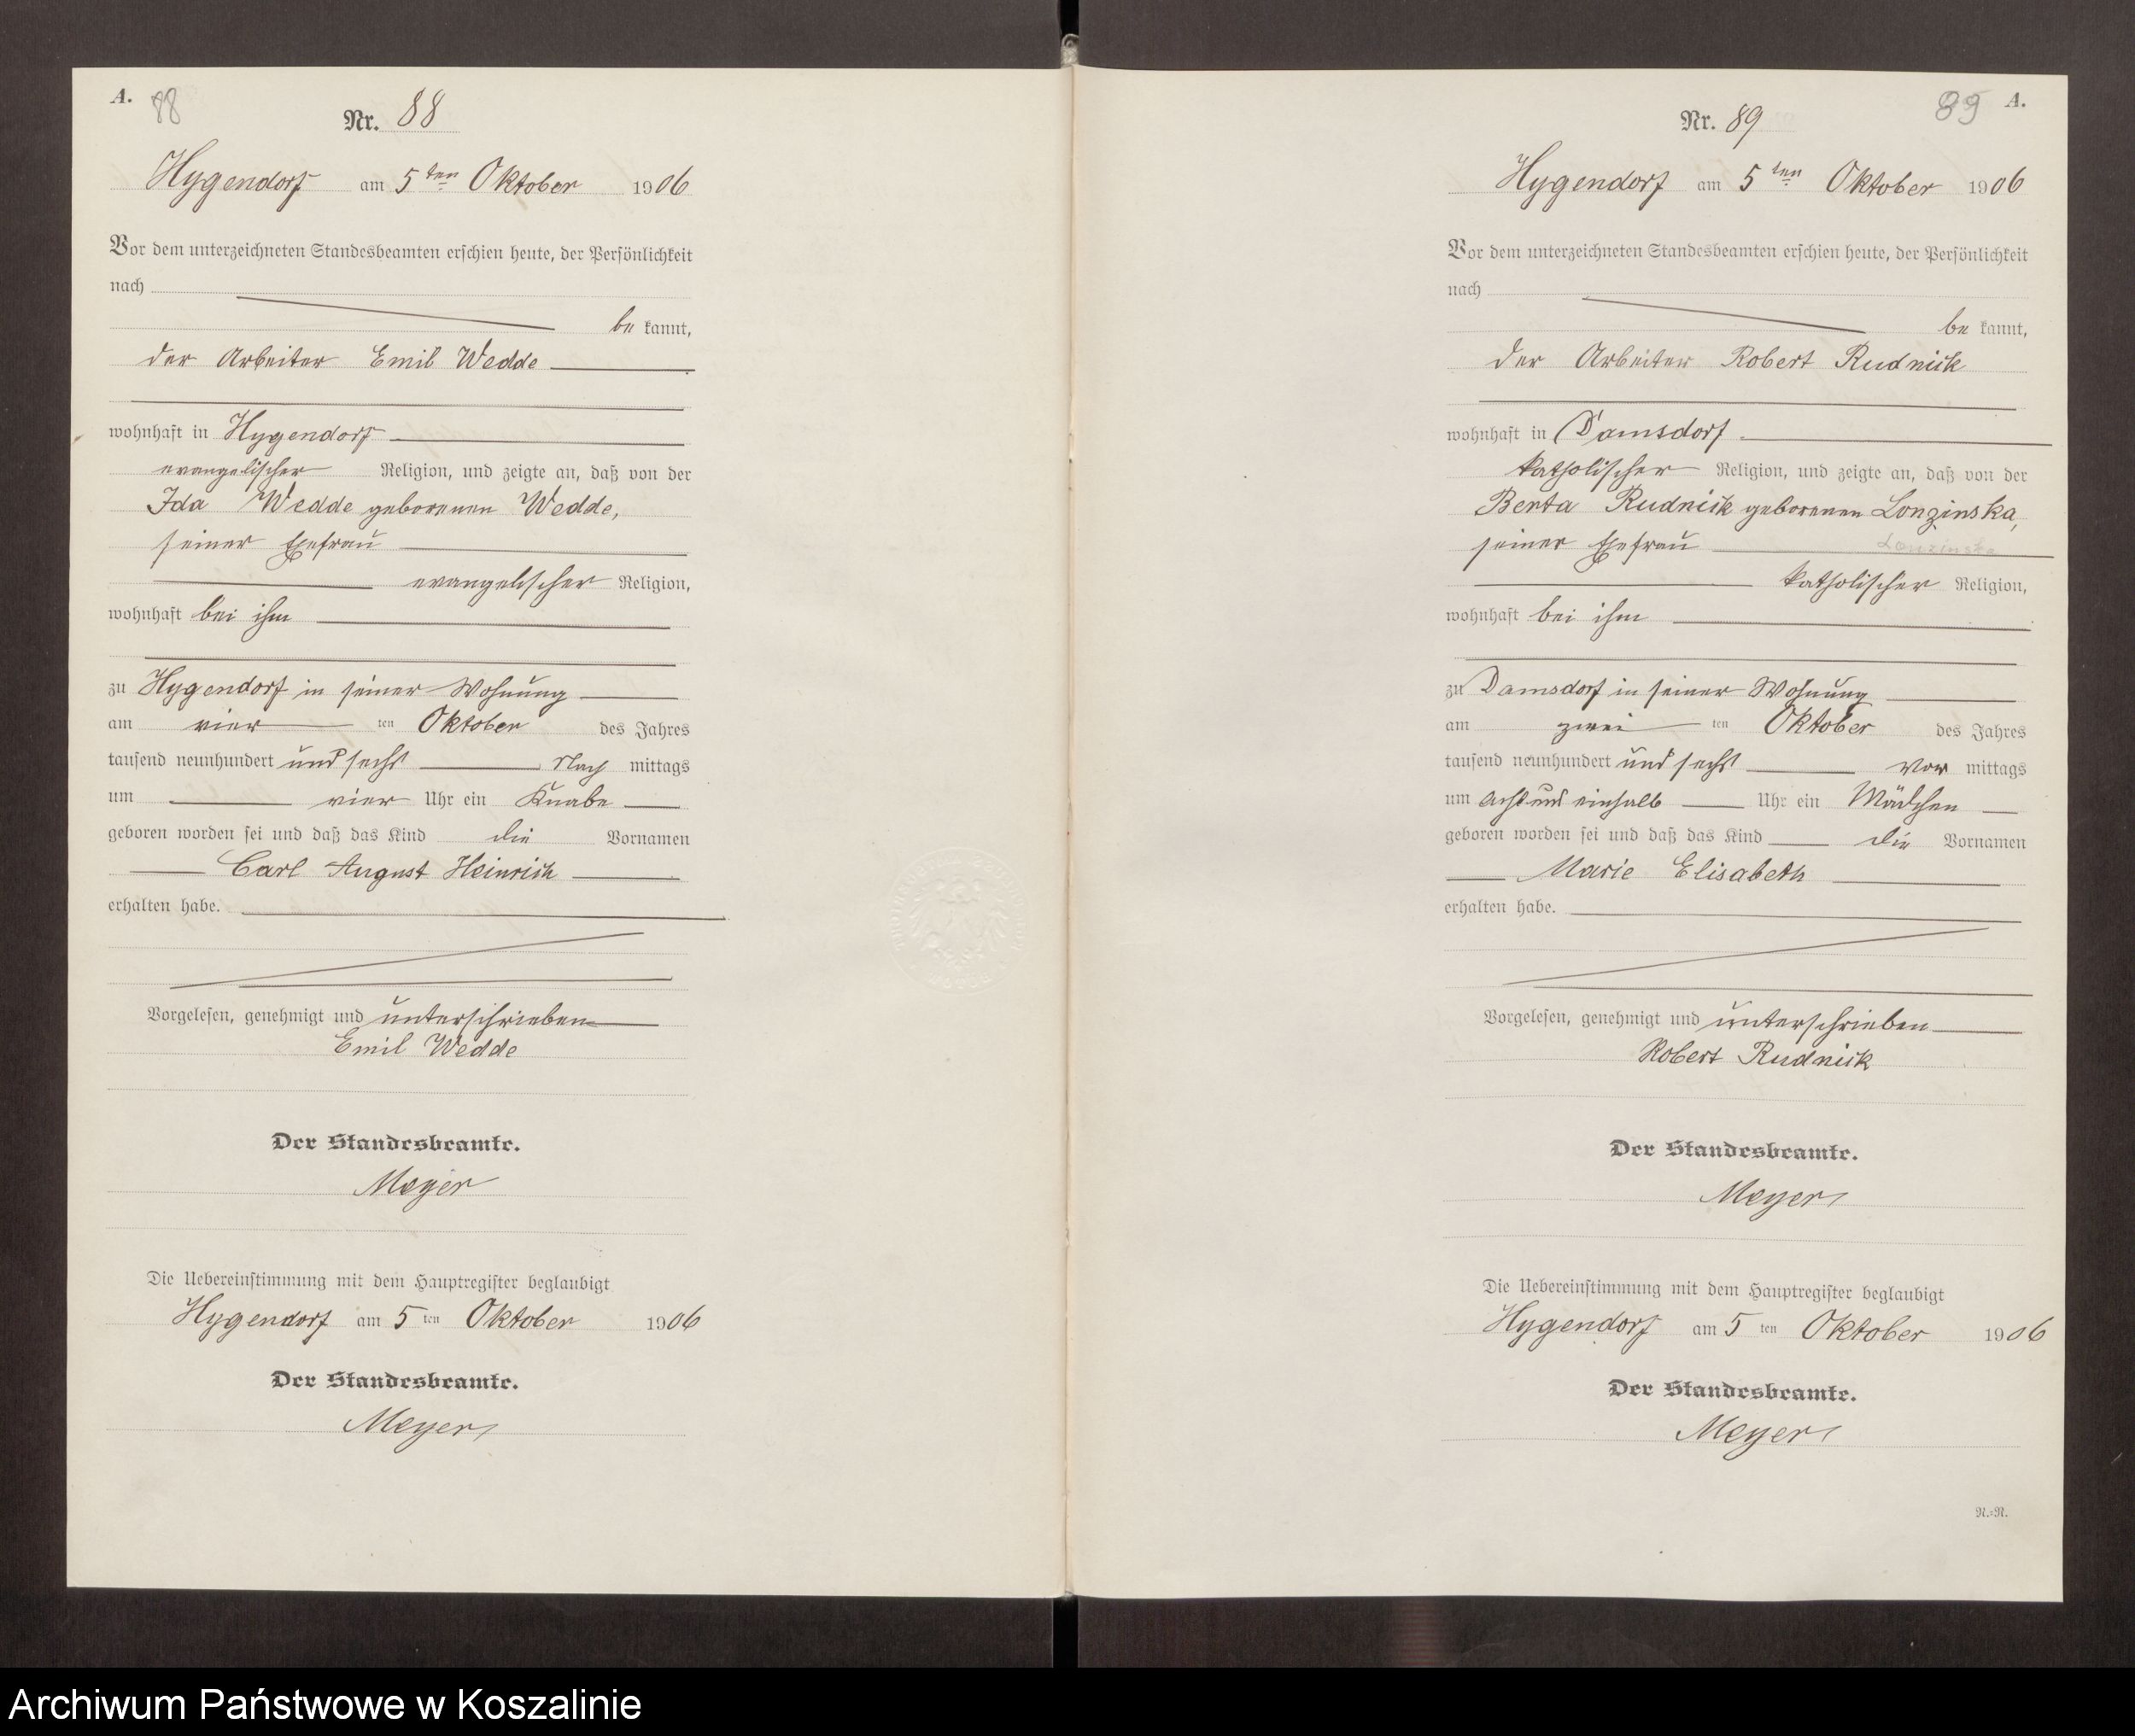 A.
88
Nr. 88
Hygendorf am 5ten Oktober 1906
Vor dem unterzeichneten Standesbeamten erschien heute, der Persönlichkeit
nach
be kannt,
der Arbeiter Emil Wedde
wohnhaft in Hygendorf
evangelischer Religion, und zeigte an, daß von der
Ida Wedde geborenen Wedde,
seiner Ehefrau
evangelischer Religion,
wohnhaft bei ihm
zu Hygendorf in seiner Wohnung
am vier ten Oktober des Jahres
tausend neunhundert und sechs Nach mittags
um vier Uhr ein Knabe
geboren worden sei und daß das Kind die Vornamen
Carl August Heinrich
erhalten habe.
Vorgelesen, genehmigt und unterschrieben
Emil Wedde
Der Standesbeamte.
Meyer
Die Uebereinstimmung mit dem Hauptregister beglaubigt
Hygendorf am 5 ten Oktober 1906
Der Standesbeamte.
Meyer
89 A.
Nr. 89
Hygendorf am 5ten Oktober 1906
Vor dem unterzeichneten Standesbeamten erschien heute, der Persönlichkeit
nach
be kannt,
der Arbeiter Robert Rudnick
wohnhaft in Damsdorf
katholischer Religion, und zeigte an, daß von der
Berta Rudnick geborenen Lonzinska,
seiner Ehefrau Lonzinska
katholischer Religion,
wohnhaft bei ihm
zu Damsdorf in seiner Wohnung
am zwei ten Oktober des Jahres
tausend neunhundert und sechs Vor mittags
um acht und einhalb Uhr ein Mädchen
geboren worden sei und daß das Kind die Vornamen
Marie Elisabeth
erhalten habe.
Vorgelesen, genehmigt und unterschrieben
Robert Rudnick
Der Standesbeamte.
Meyer
Die Uebereinstimmung mit dem Hauptregister beglaubigt
Hygendorf am 5 ten Oktober 1906
Der Standesbeamte.
Meyer
N.=R.
Archiwum Państwowe w Koszalinie